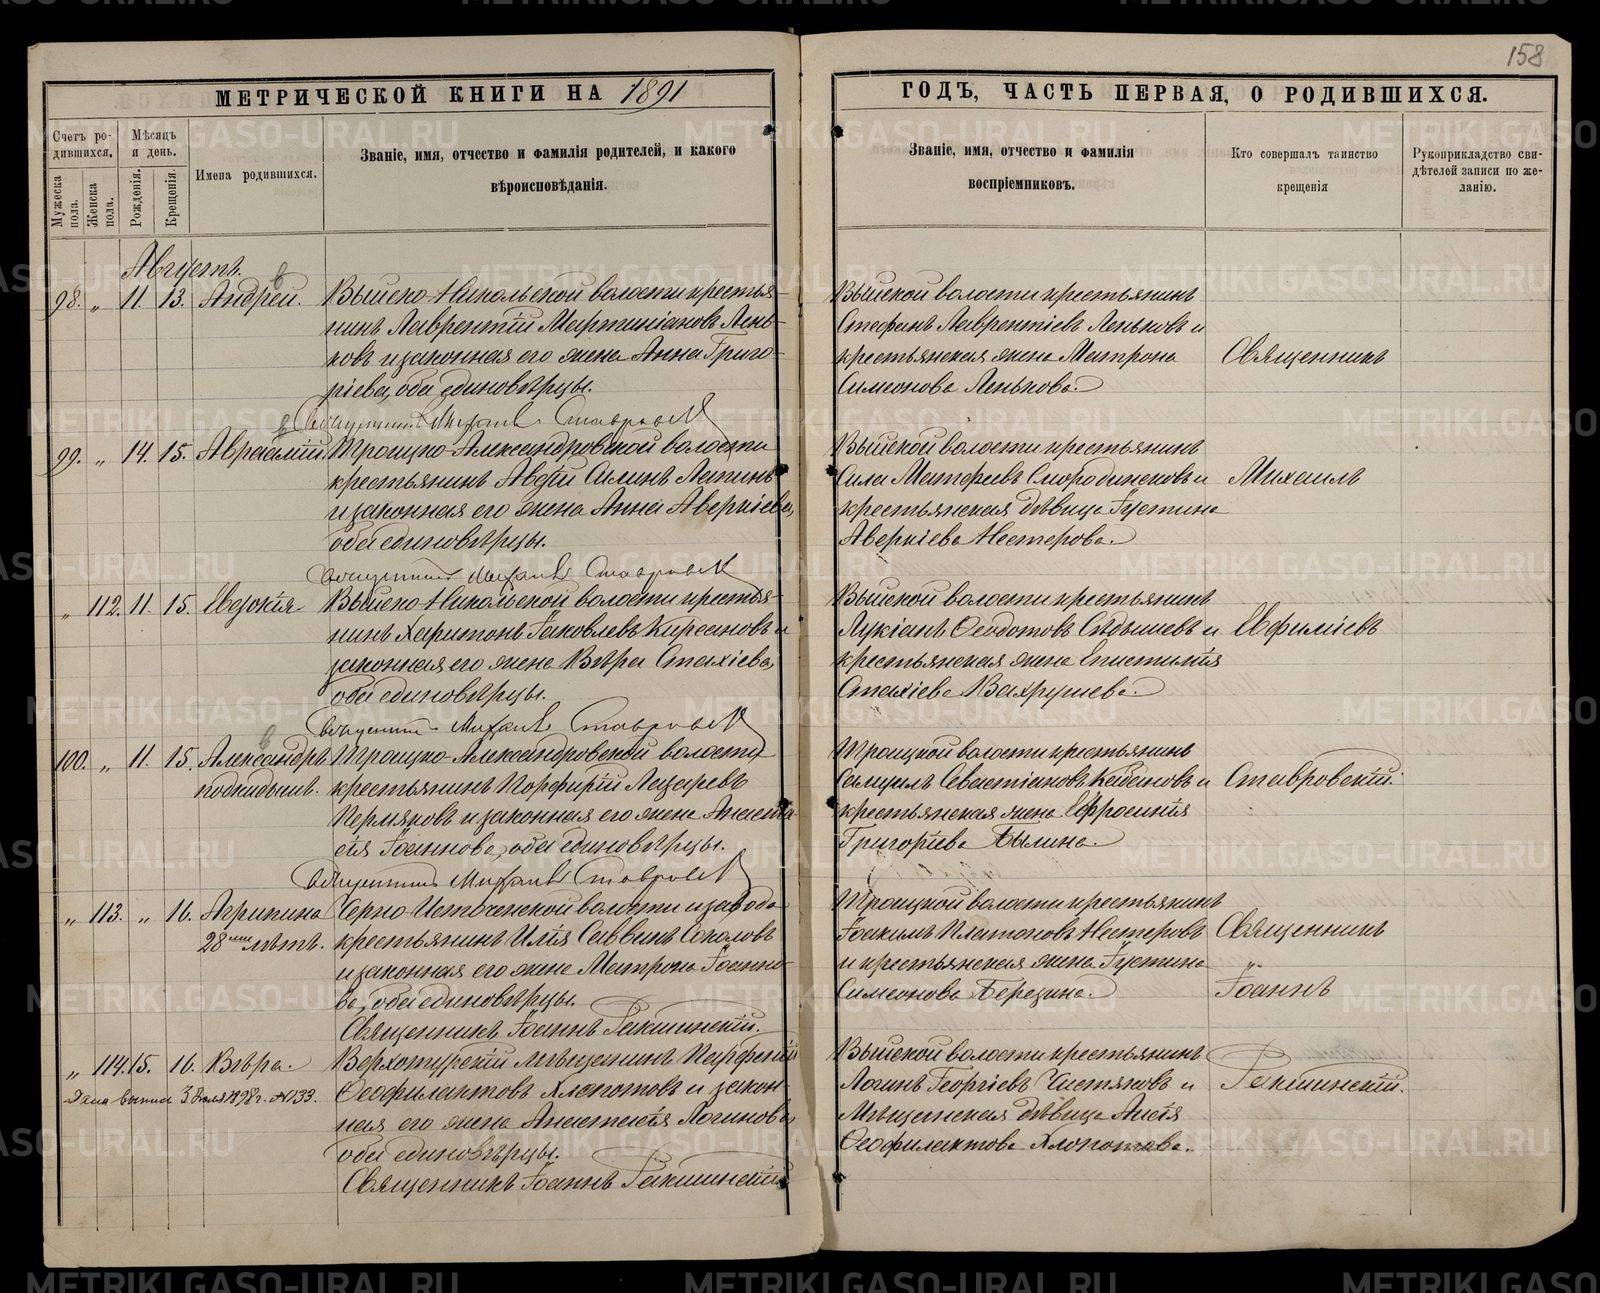 158
МЕТРИЧЕСКОЙ КНИГИ НА 1891
ГОДЪ, ЧАСТЬ ПЕРВАЯ, О РОДИВШИХСЯ.
Счетъ ро-
дившихся.
Мужеска
пола.
Женска
пола.
Мѣсяцъ
и день.
Рожденія.
Крещенія.
Имена родившихся.
Званіе, имя, отчество и фамилія родителей, и какого
вѣроисповѣданія.
Званіе, имя, отчество и фамилія
воспріемниковъ.
Кто совершалъ таинство
крещенія
Рукоприкладство сви-
дѣтелей записи по же-
ланію.
Августъ.
98. „ 11. 13. Андрей.
Выйско-Никольской волости крестья-
нинъ Лаврентій Мартиніановъ Лень-
ковъ и законная его жена Анна Григо-
ріева, оба единовѣрцы.
Михаилъ Ставровск
Выйской волости крестьянинъ
Стефанъ Лаврентіевъ Леньковъ и
крестьянская жена Матрона
Симеонова Ленькова.
Священникъ
99. „ 14. 15. Авраамій.
Троицко-Александровской волости
крестьянинъ Авдій Силинъ Лапинъ
и законная его жена Анна Аверкіева,
оба единовѣрцы.
Михаилъ Ставровск
Выйской волости крестьянинъ
Сила Матфеевъ Смородинсковъ и
крестьянская дѣвица Іустина
Аверкіева Нестерова.
Михаилъ
„ 112. 11. 15. Евдокія.
Выйско-Никольской волости крестья-
нинъ Харитонъ Іаковлевъ Кирсановъ и
законная его жена Вѣра Стахіева,
оба единовѣрцы.
Михаилъ Ставровск
Выйской волости крестьянинъ
Лукіанъ Ѳеодотовъ Сѣдышевъ и
крестьянская жена Епистимія
Стахіева Вахрушева.
Евфиміевъ
100. „ 11. 15. Александръ
подкидышъ.
Троицко-Александровской волости
крестьянинъ Порфирій Лазаревъ
Пермяковъ и законная его жена Анаста-
сія Іоаннова, оба единовѣрцы.
Михаилъ Ставровск
Троицкой волости крестьянинъ
Самуилъ Севастіановъ Кабановъ и
крестьянская жена Евфросинія
Григоріева Былина.
Ставровскій.
„ 113. „ 16. Агрипина
28ми лѣтъ.
Черно-Источенской волости и завода
крестьянинъ Илія Саввинъ Соколовъ
и законная его жена Матрона Іоанно-
ва, оба единовѣрцы.
Священникъ Іоаннъ Ракшинскій.
Троицкой волости крестьянинъ
Іоакимъ Платоновъ Нестеровъ
и крестьянская жена Іустина
Симеонова Березина.
Священникъ
„
Іоаннъ
„ 114. 15. 16. Вѣра.
Дана выпись 3 1898 г. №133.
Верхотурскій мѣщанинъ Парфеній
Ѳеофилактовъ Хлопотовъ и закон-
ная его жена Анастасія Логинова,
оба единовѣрцы.
Священникъ Іоаннъ Ракшинскій
Выйской волости крестьянинъ
Логинъ Георгіевъ Чистяковъ и
Мѣщанская дѣвица Анѳія
Ѳеофилактова Хлопотова.
Ракшинскій.
METRIKI.GASO-URAL.RU